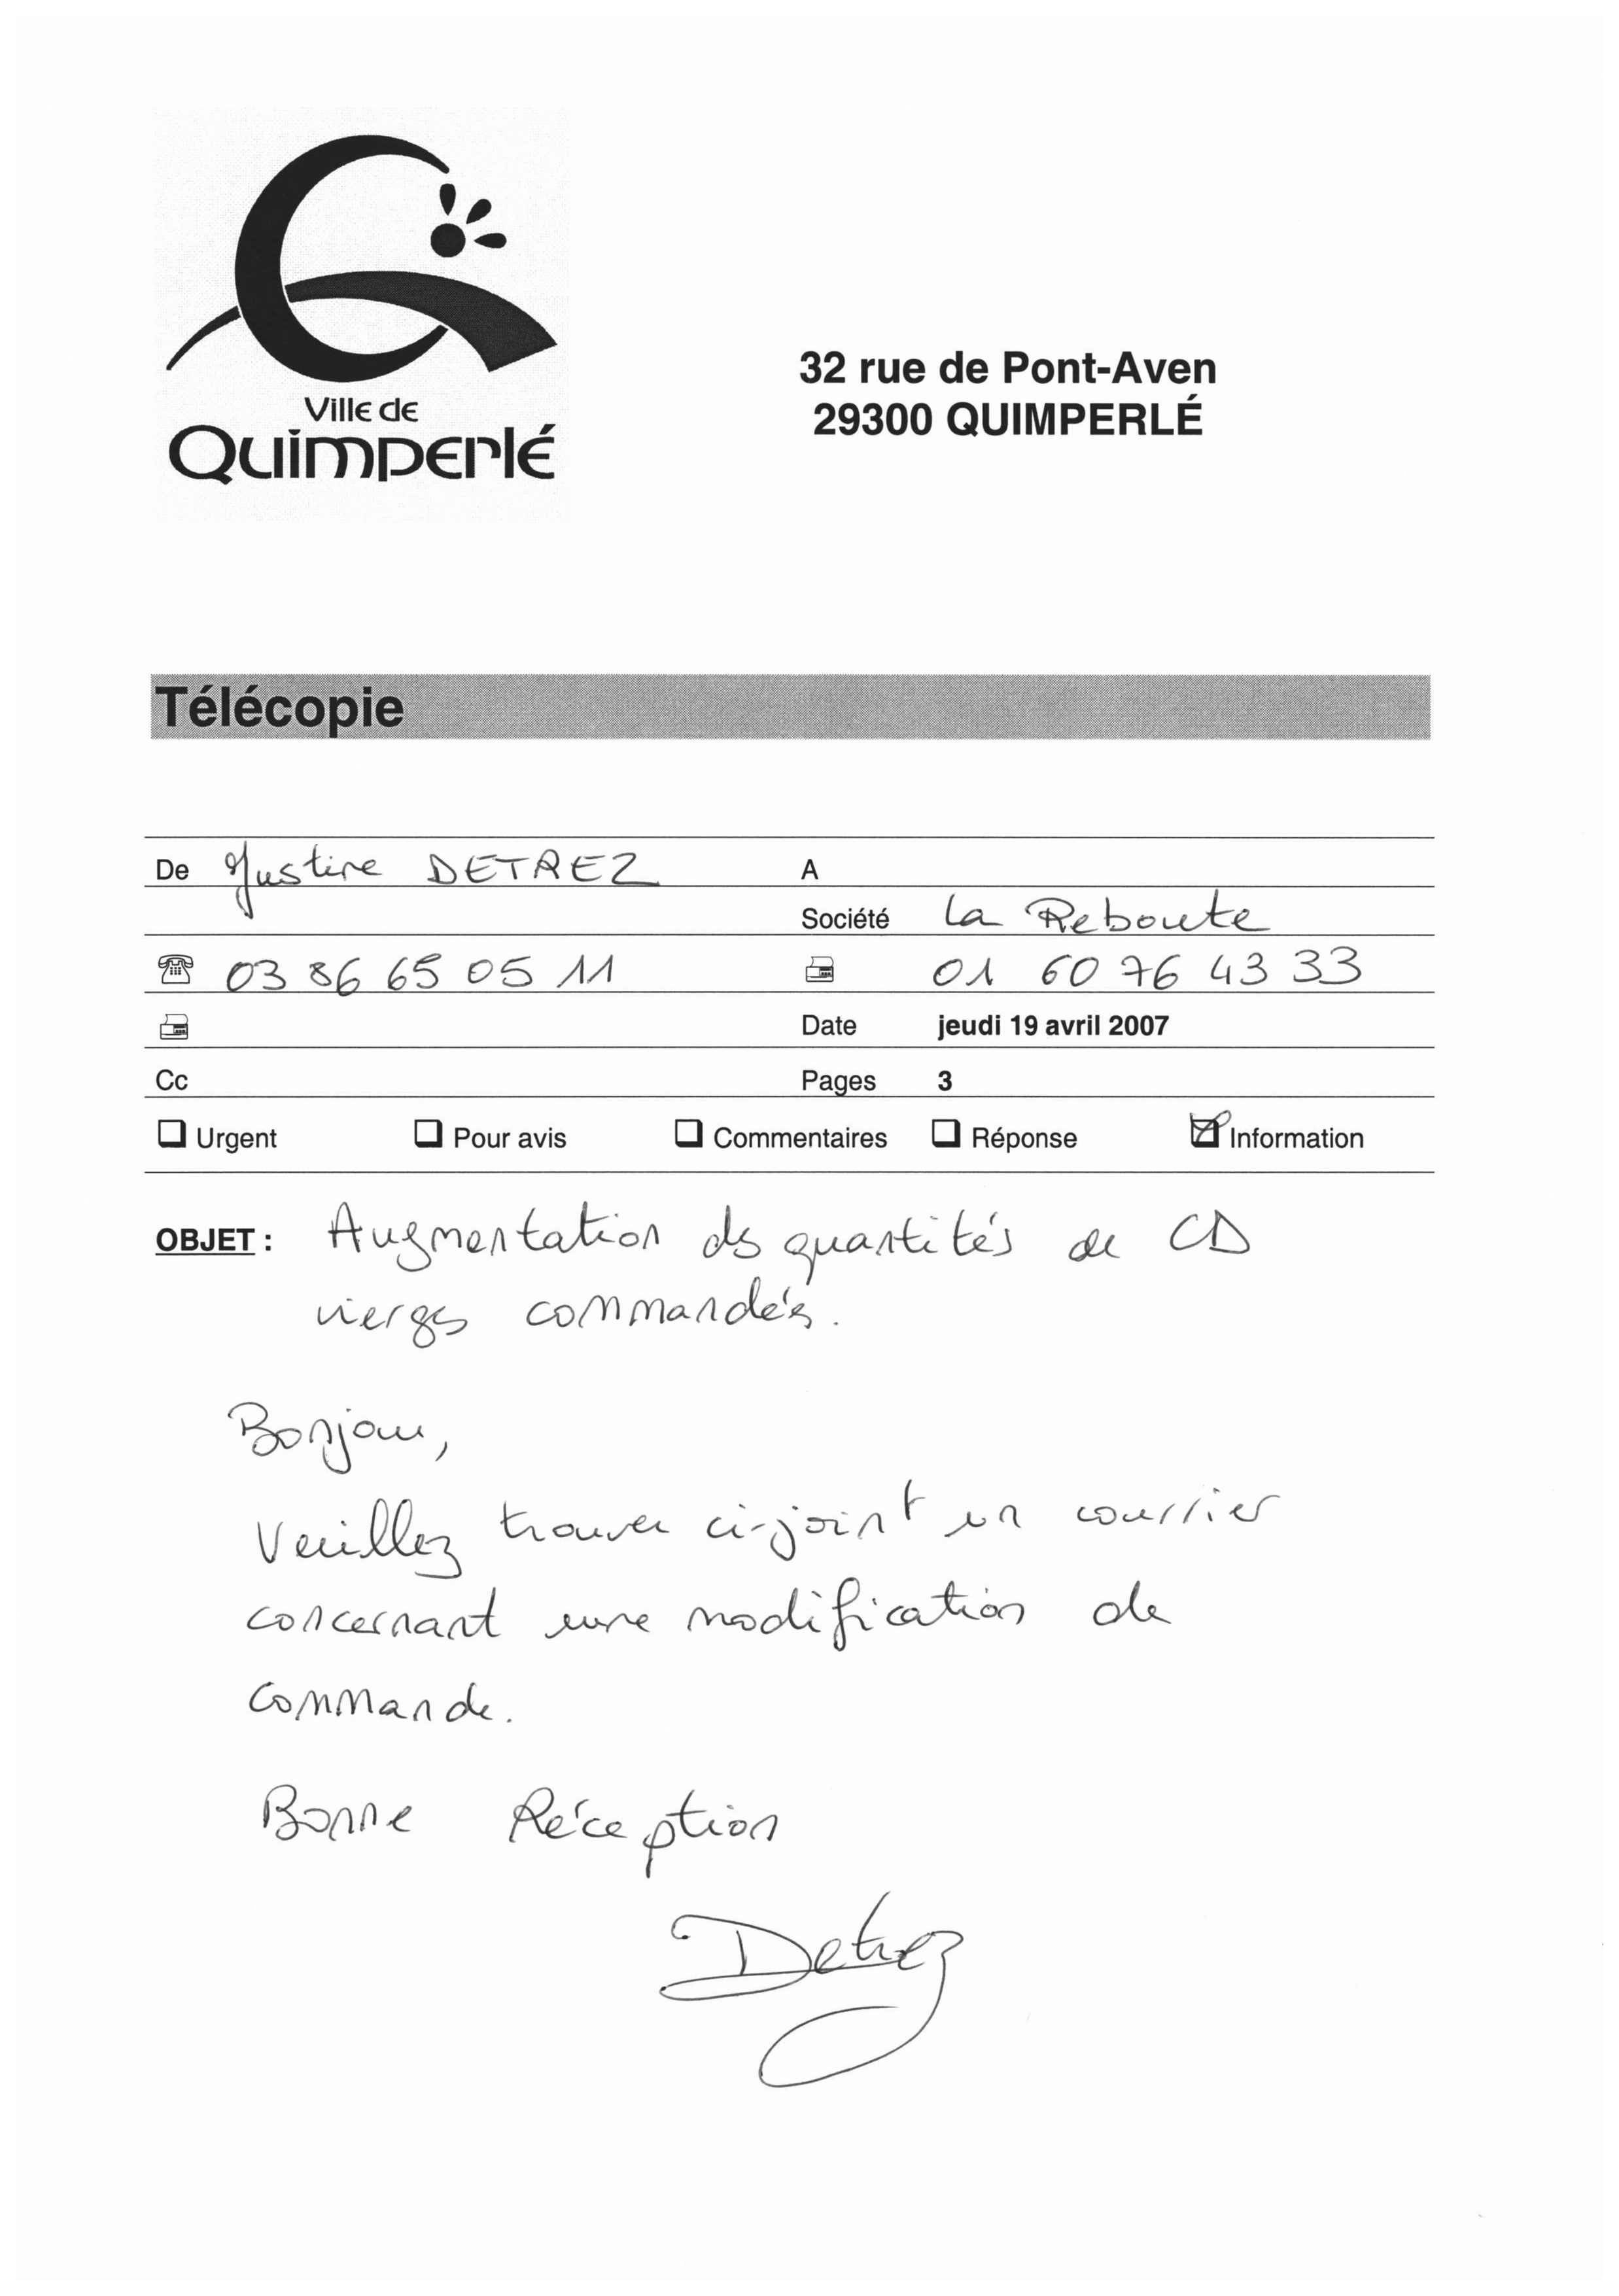 Ville de
Quimperlé
32 rue de Pont-Aven
29300 QUIMPERLÉ
Télécopie
De Justine DETREZ A
Société La Reboute
03 86 65 05 11 01 60 76 43 33
Date jeudi 19 avril 2007
Cc Pages 3
Urgent Pour avis Commentaires Réponse Information
OBJET : Augmentation des quantités de CD
vierges commandés.
Bonjour,
Veuillez trouver ci-joint un courrier
concernant une modification de
commande.
Bonne Réception
Detrez